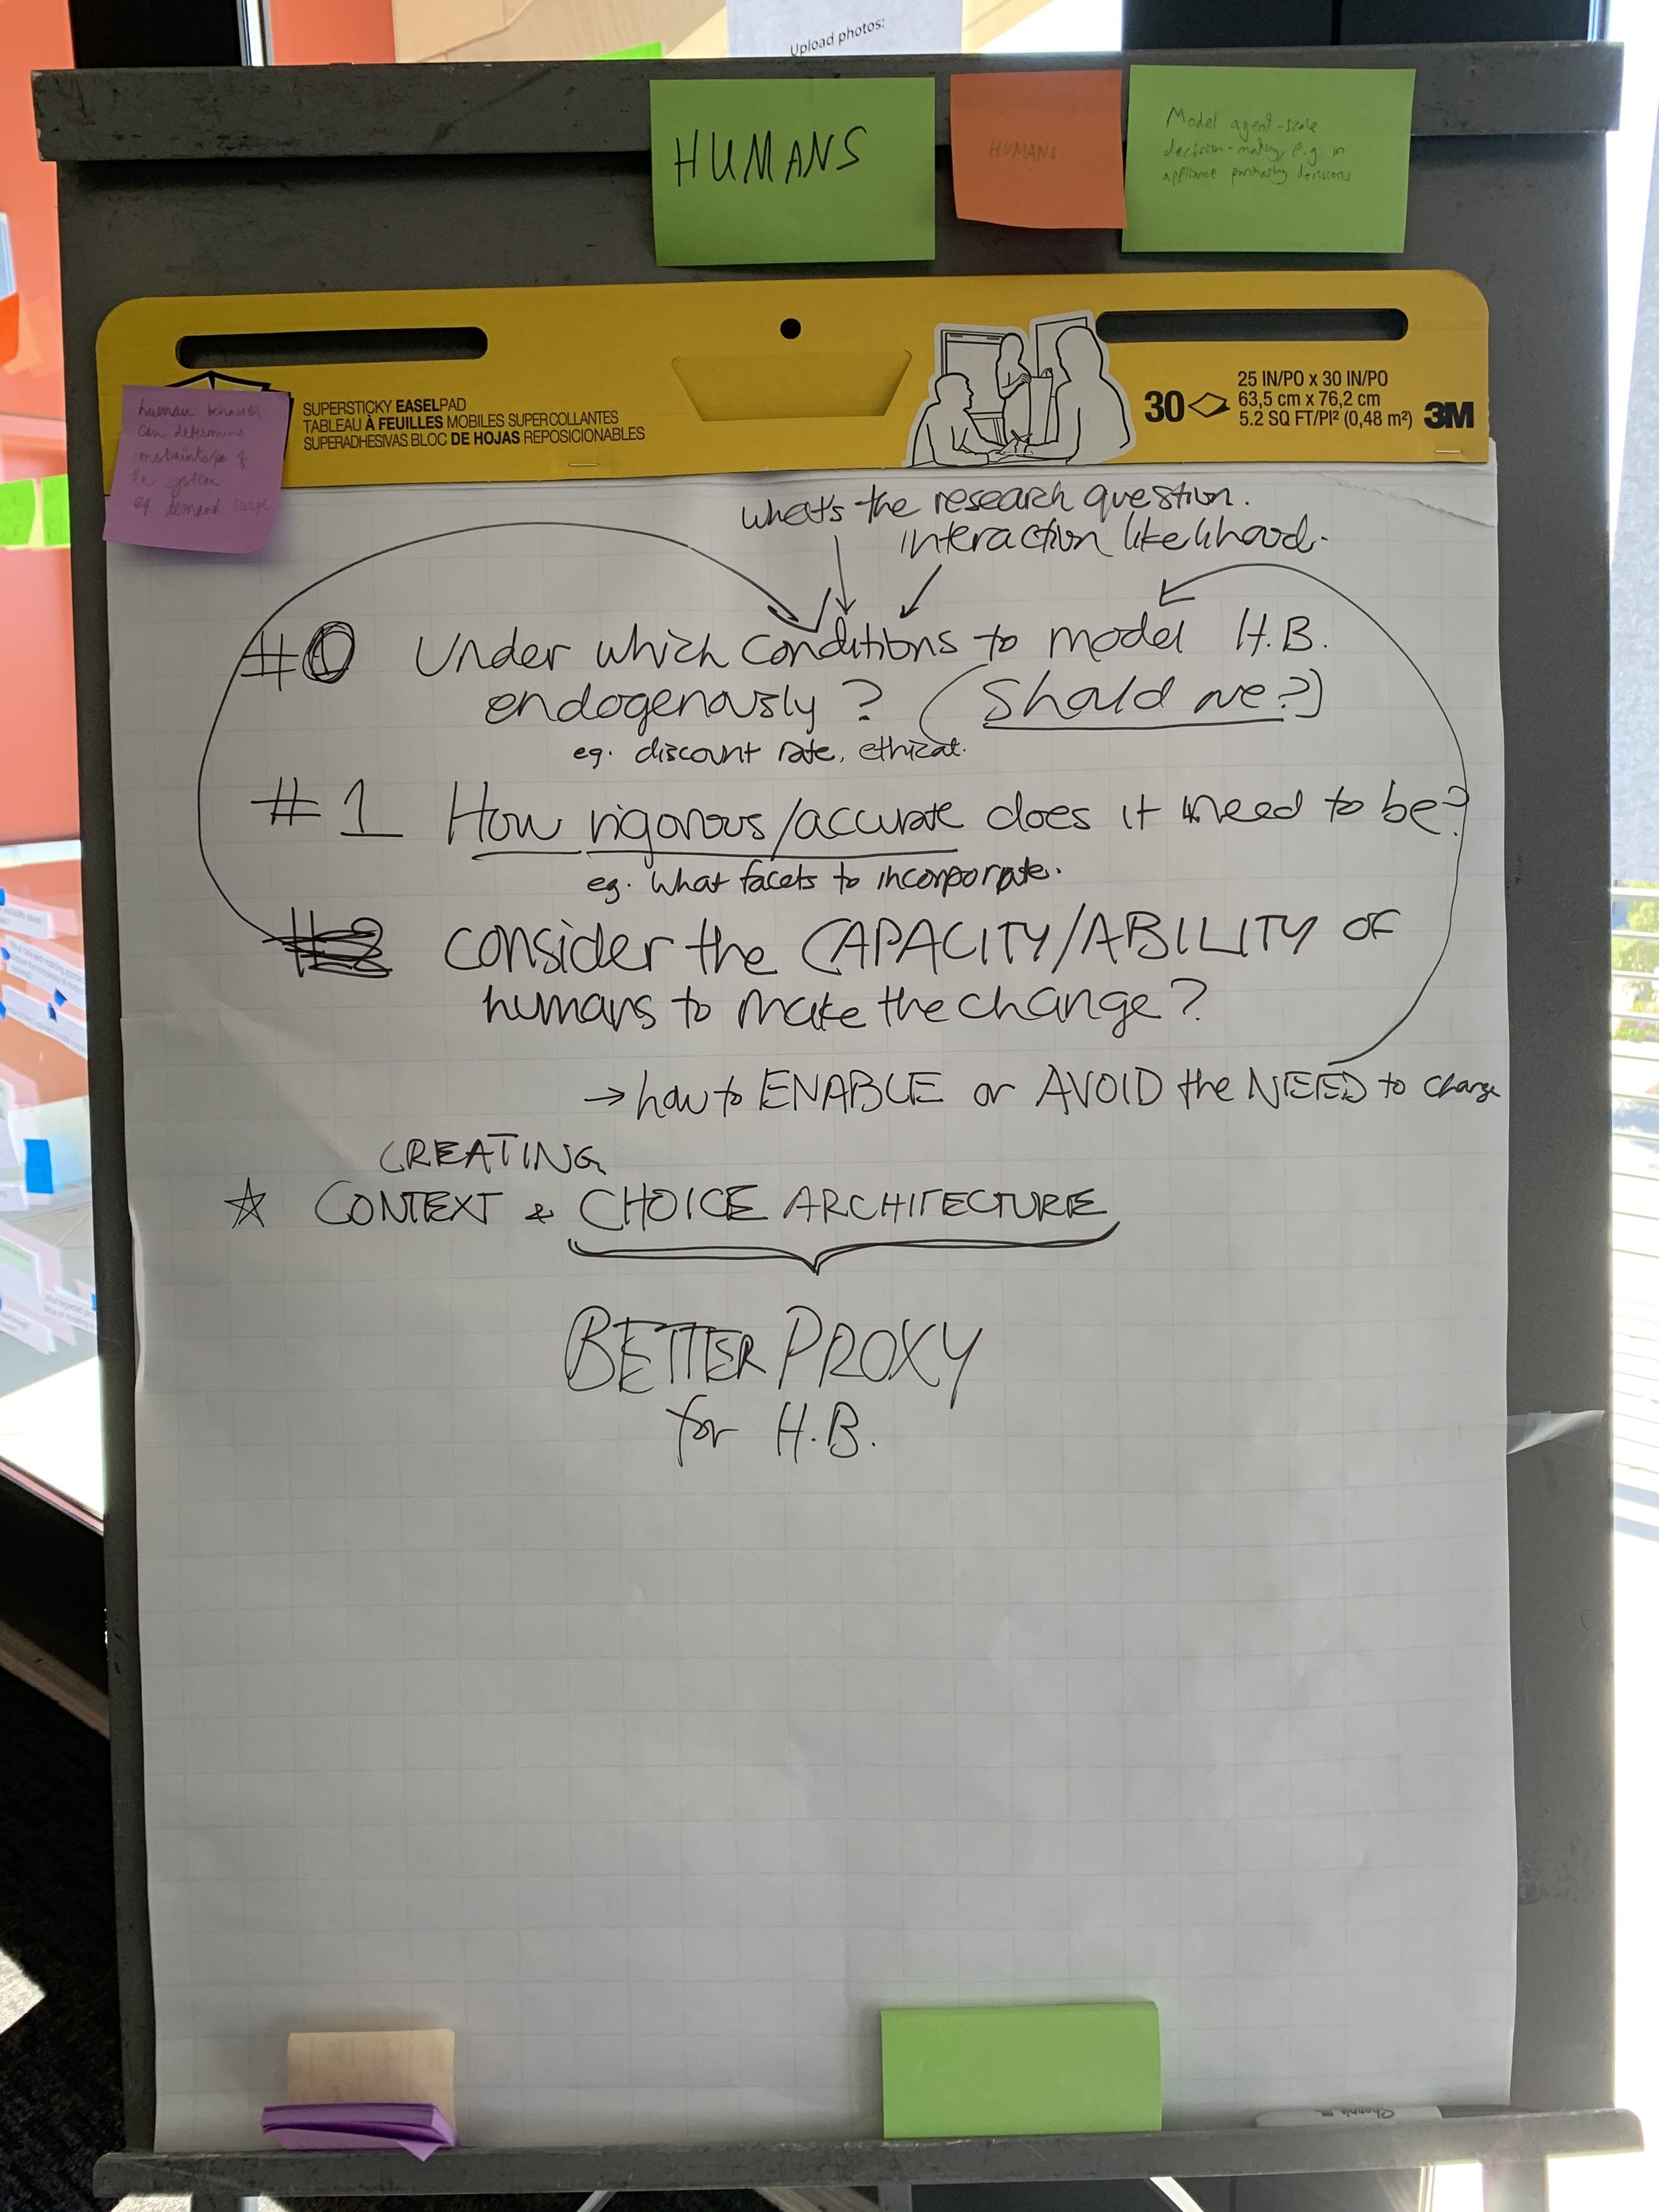 Upload photos:
HUMANS
HUMANS
Model agent-scale
decision-making, e.g. in
appliance purchasing decisions
SUPERSTICKY EASELPAD
TABLEAU À FEUILLES MOBILES SUPERCOLLANTES
SUPERADHESIVAS BLOC DE HOJAS REPOSICIONABLES
30
25 IN/PO x 30 IN/PO
63,5 cm x 76,2 cm
5.2 SQ FT/PI² (0,48 m²)
3M
human behavior
can determine
constraints of
the system
eg demand surge
what's the research question.
interaction likelihood.
#0 Under which conditions to model H.B.
endogenously? (Should we?)
eg. discount rate, ethical.
#1 How rigorous/accurate does it need to be?
eg. what facets to incorporate.
consider the CAPACITY/ABILITY OF
humans to make the change?
→ how to ENABLE or AVOID the NEED to change
CREATING
☆ CONTEXT & CHOICE ARCHITECTURE
BETTER PROXY
for H.B.
Sharpie